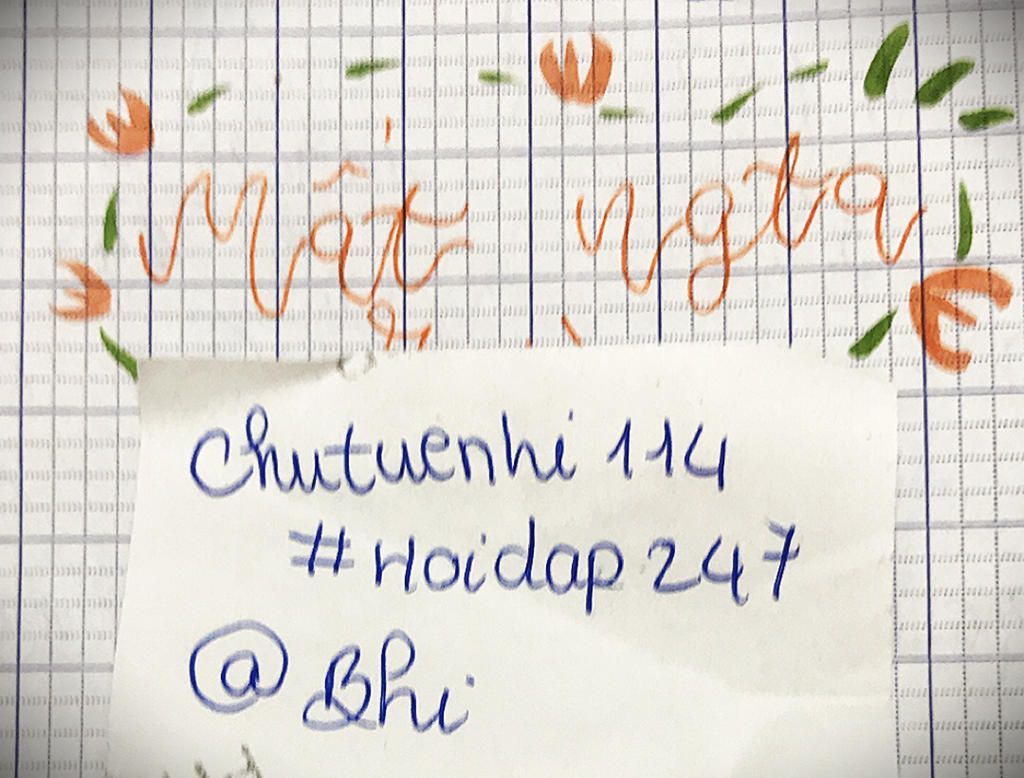 Mất ngta
Chutuenhi 114
#Hoidap 247
@Bhi